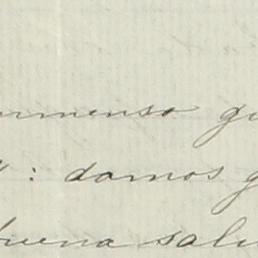 inmenso gu
: damos g
buena salu